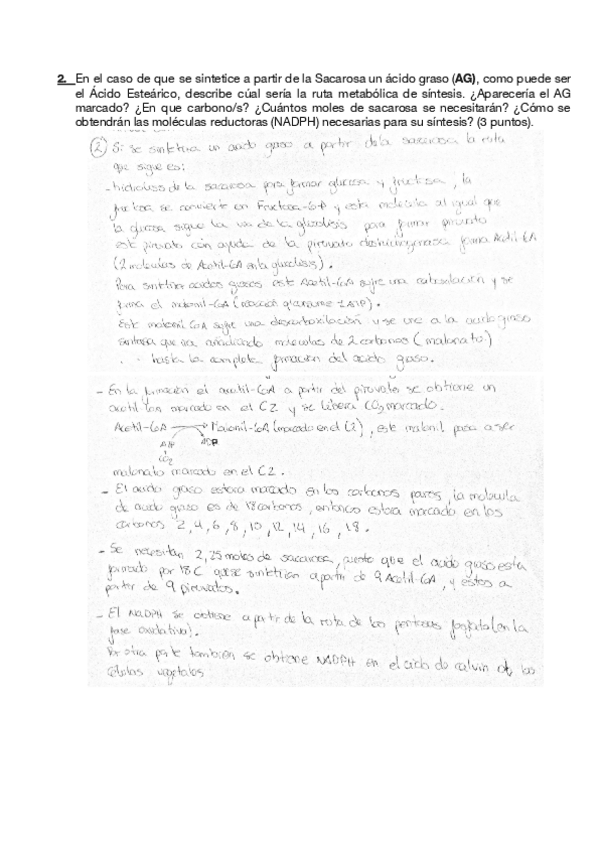 2. En el caso de que se sintetice a partir de la Sacarosa un ácido graso (AG), como puede ser
el Ácido Esteárico, describe cúal sería la ruta metabólica de síntesis. ¿Aparecería el AG
marcado? ¿En que carbono/s? ¿Cuántos moles de sacarosa se necesitarán? ¿Cómo se
obtendrán las moléculas reductoras (NADPH) necesarias para su síntesis? (3 puntos).
② Si se sintetiza un acido graso a partir de la sacarosa la ruta
que sigue es:
- hidrolisis de la sacarosa para formar glucosa y fructosa, la
fructosa se convierte en Fructosa-6-P y esta molecula al igual que
la glucosa sigue la via de la glucolisis para formar piruvato
este piruvato con ayuda de la piruvato deshidrogenasa forma Acetil-CoA
(2 moleculas de Acetil-CoA en la glucolisis).
Para sintetizar acidos grasos este Acetil-CoA sufre una carboxilación y se
forma el malonil-CoA (reacción q consume 1 ATP).
Este malonil CoA sufre una descarboxilación y se une a la acido graso
sintasa que va añadiendo moleculas de 2 carbonos (malonato)
hasta la completa formación del acido graso.
- En la formación el acetil-CoA a partir del piruvato se obtiene un
acetil-CoA marcado en el C2 y se libera CO₂ marcado.
Acetil-CoA → Malonil-CoA (marcado en el C2), este malonil pasa a ser
ATP ADP
CO₂
malonato marcado en el C2.
- El acido graso estara marcado en los carbonos pares, la molecula
de acido graso es de 18 carbonos, entonces estara marcado en los
carbonos 2, 4, 6, 8, 10, 12, 14, 16, 18.
- Se necesitan 2,25 moles de sacarosa, puesto que el acido graso esta
formado por 18 C que se sintetizan a partir de 9 Acetil-CoA, y estos a
partir de 9 piruvatos.
- El NADPH se obtiene a partir de la ruta de las pentosas fosfato (en la
fase oxidativa).
Por otra parte tambien se obtiene NADPH en el ciclo de calvin de las
celulas vegetales